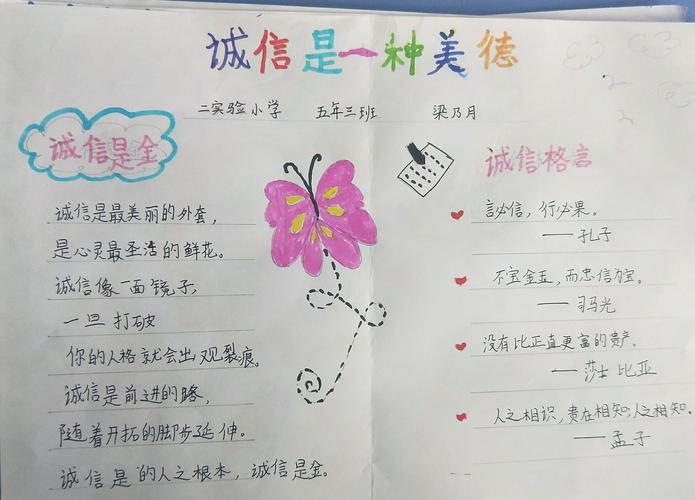 诚信是一种美德
二实验小学 五年三班 梁乃月
诚信是金
诚信是最美丽的外套，
是心灵最圣洁的鲜花。
诚信像一面镜子，
一旦 打破
你的人格就会出现裂痕。
诚信是前进的路，
随着开拓的脚步延伸。
诚信是的人之根本，诚信是金。
诚信格言
言必信，行必果。
——孔子
不宝金玉，而忠信为宝。
——司马光
没有比正直更富的遗产。
——莎士比亚
人之相识，贵在相知；人之相知。
——孟子